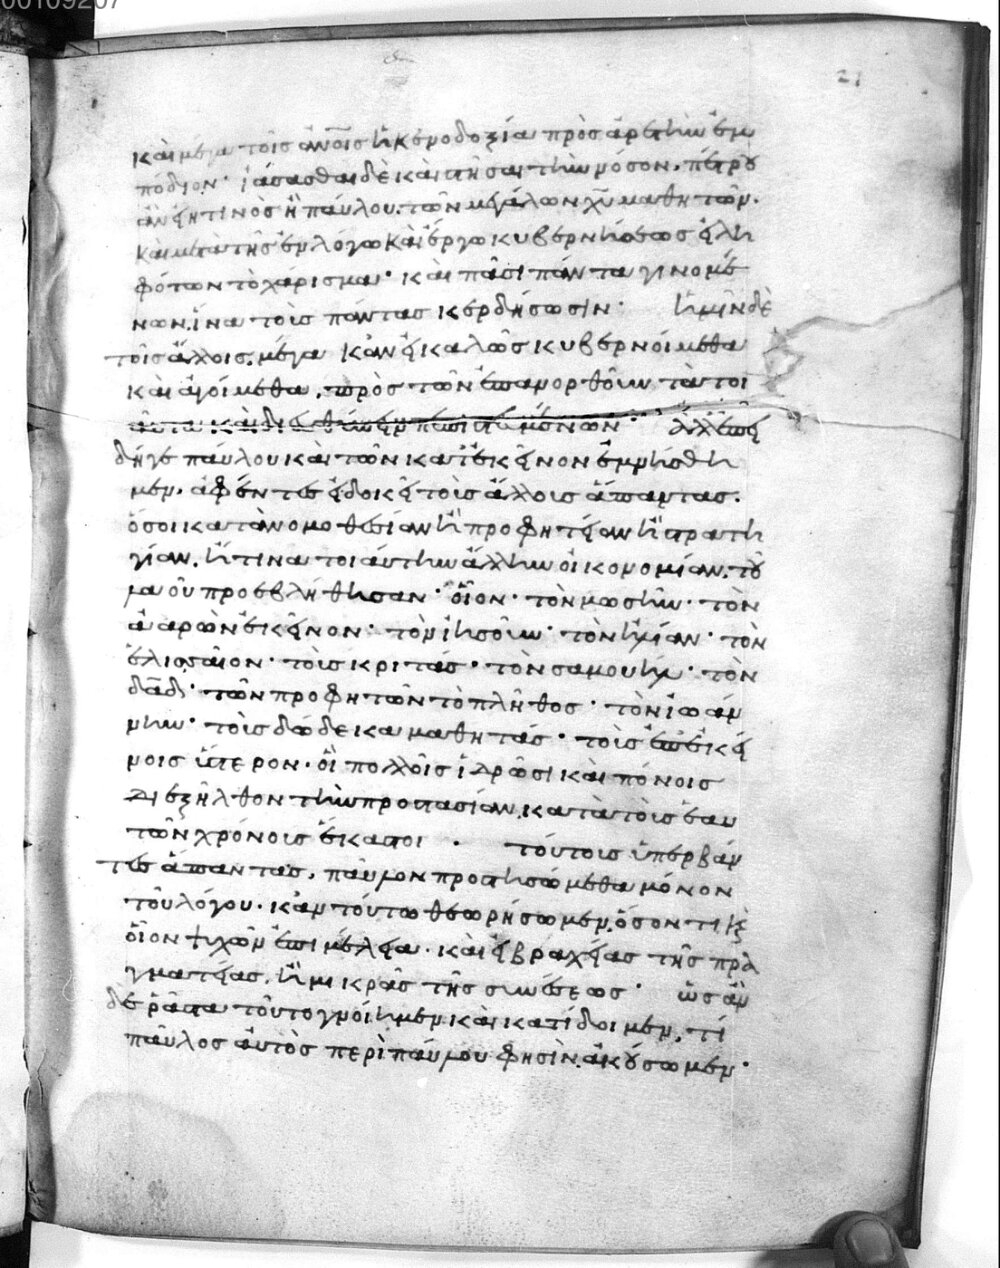 00109207
21
καὶ μέγα τοῖς ἀν̅οις ἡ κενοδοξία πρὸς ἀρετὴν ἐμ
πόδιον· ἰάσασθαι δὲ καὶ στῆσαι τὴν νόσον, πέτρου
ἂν εἴη τινὸς ἢ παύλου. τῶν μεγάλων χ̅υ μαθητῶν.
καὶ μετὰ τῆς ἐν λόγω καὶ ἔργω κυβερνήσεως εἰλη
φότων τὸ χάρισμα· καὶ πᾶσι πάντα γινομέ
νων. ἵνα τοὺς πάντας κερδήσωσιν· ἡμῖν δὲ
τοῖς ἄλλοις, μέγα κἂν εἰ καλῶς κυβερνοίμεθα
καὶ ἀγοίμεθα, πρὸς τῶν ἐπανορθοῦν τὰ τοι
αῦτα καὶ διευθύνειν πεπιστευμένων· ἀλλ' ἐπεὶ
δήγε παύλου καὶ τῶν κατ' ἐκεῖνον ἐμνήσθη
μεν. ἀφέντες εἰ δοκεῖ τοὺς ἄλλους ἅπαντας.
ὅσοι κατὰ νομοθεσίαν ἢ προφητείαν ἢ στρατη
γίαν. ἤ τινα τοιαύτην ἄλλην οἰκονομίαν, τοῦ
λαοῦ προεβλήθησαν· οἷον· τὸν μωσῆν· τὸν
ἀαρὼν ἐκεῖνον· τὸν ἰησοῦν· τὸν ἠλίαν· τὸν
ἐλισσαῖον· τοὺς κριτάς· τὸν σαμουήλ· τὸν
δ̅α̅δ· τῶν προφητῶν τὸ πλῆθος· τὸν ἰωάν
νην· τοὺς δώδεκα μαθητάς· τοὺς ἐπ' ἐκεί
νοις ὕστερον· οἳ πολλοῖς ἱδρῶσι καὶ πόνοις
διεξῆλθον τὴν προστασίαν, κατὰ τοὺς ἑαυ
τῶν χρόνους ἕκαστοι· τούτους ὑπερβάν
τες ἅπαντας, παῦλον προστησώμεθα μόνον
τοῦ λόγου. κἀν τούτω θεωρήσωμεν, ὅσον τι κ̀
οἷον ψυχῶν ἐπιμέλεια. καὶ εἰ βραχείας τῆς πρα
γματείας, ἢ μικρᾶς τῆς συνέσεως· ὡς ἂν
δὲ ῥᾶστα τοῦτο γνοίημεν καὶ κατίδοιμεν, τί
παῦλος αὐτὸς περὶ παύλου φησὶν, ἀκούσωμεν·